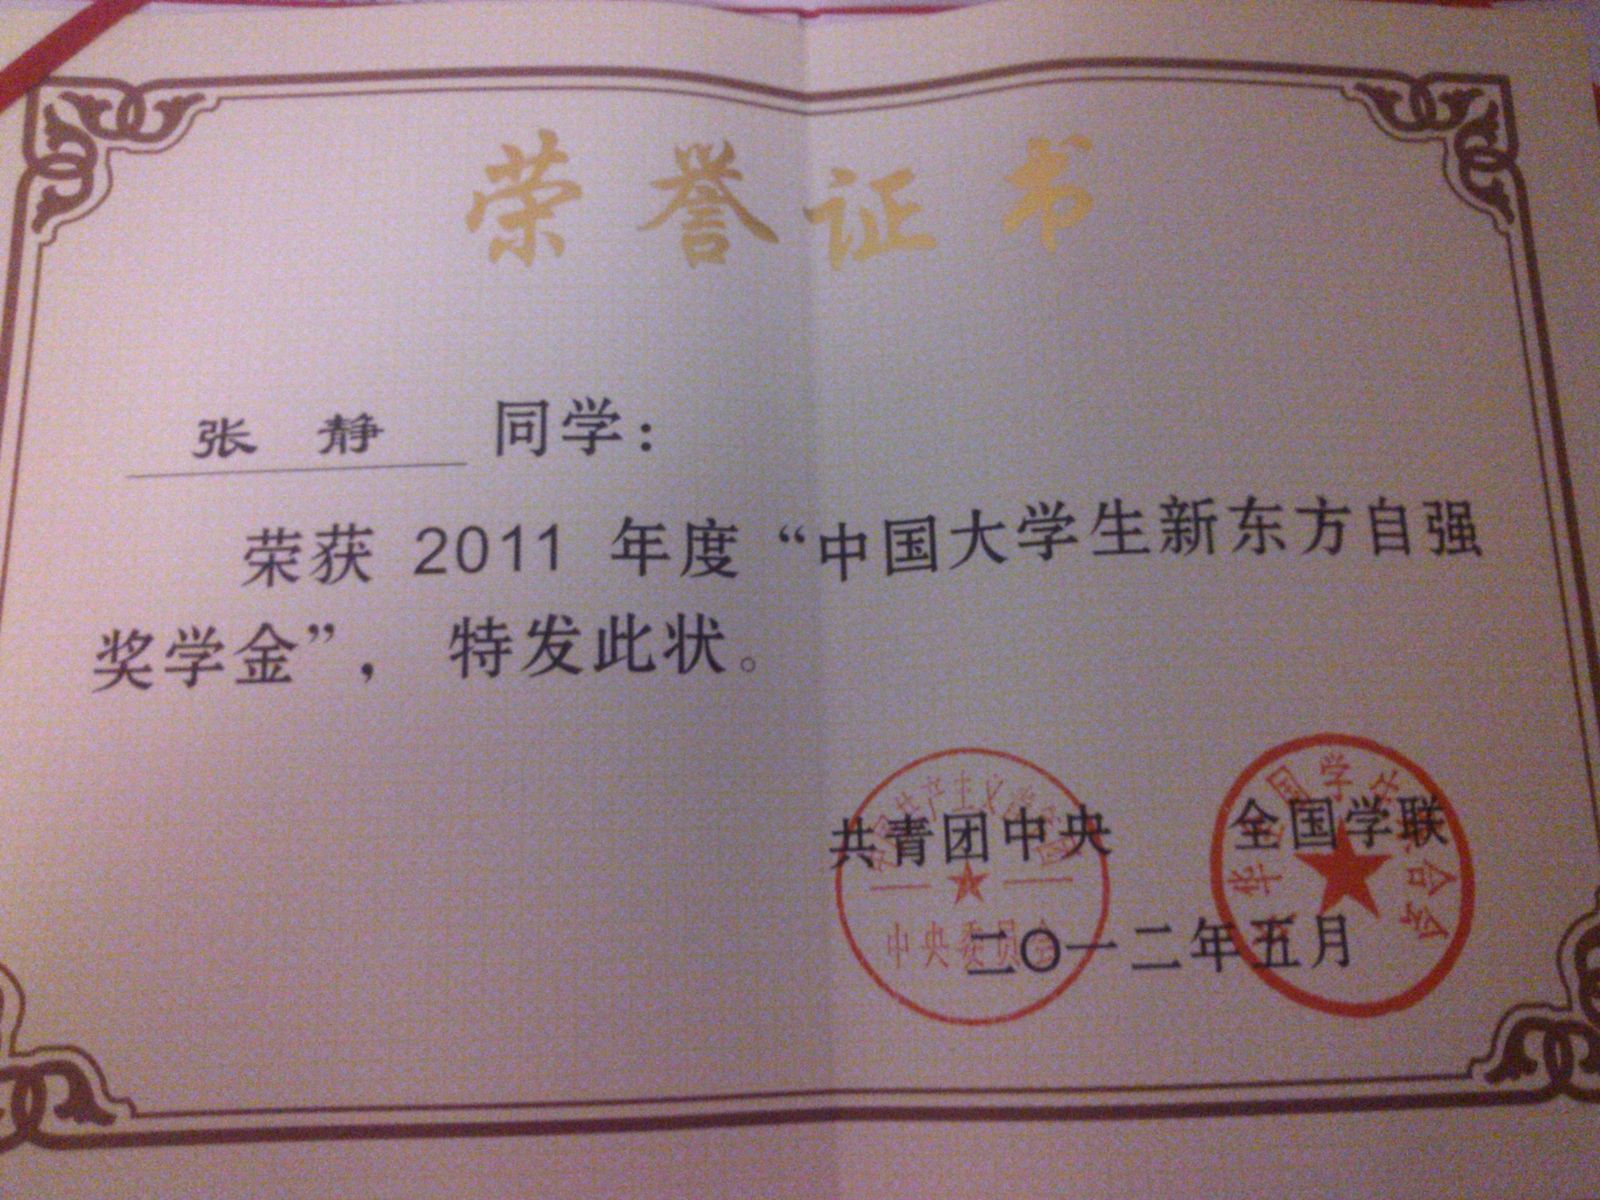 荣誉证书
张 静 同学：
荣获 2011 年度“中国大学生新东方自强
奖学金”， 特发此状。
共青团中央 全国学联
二〇一二年五月
中国共产主义青年团
中央委员会
中华全国学生联合会